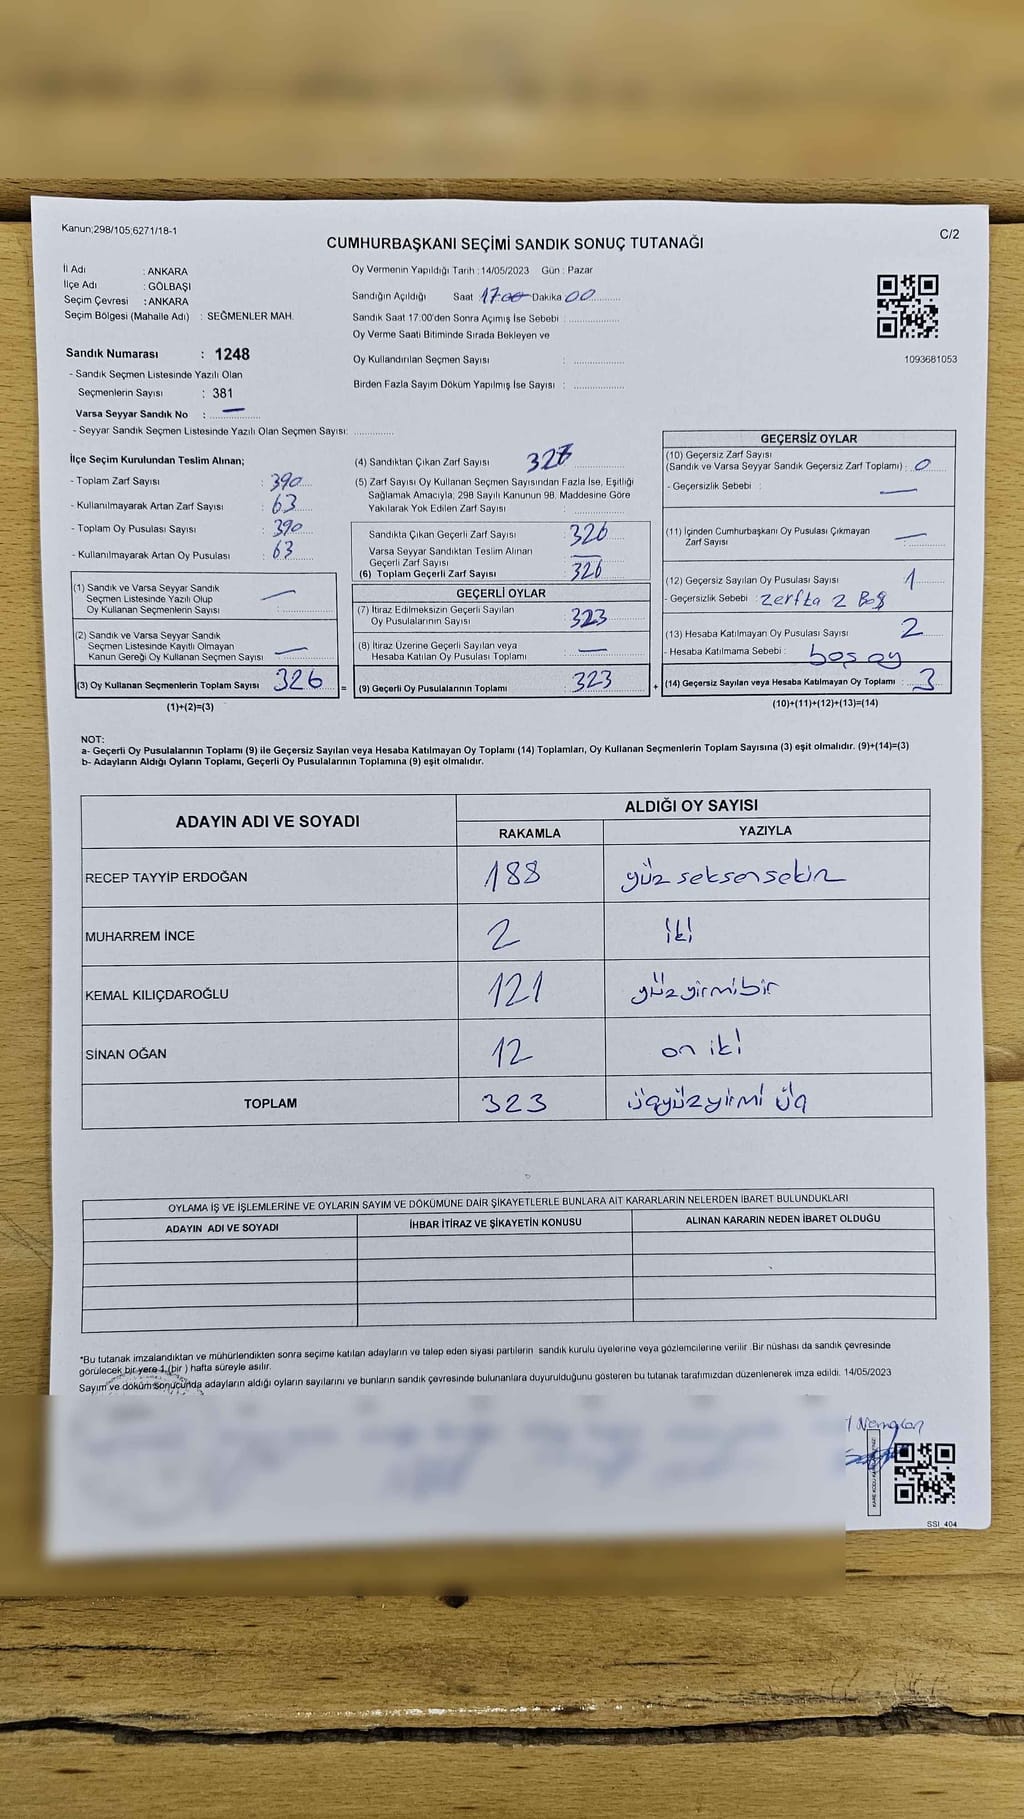 Kanun;298/105;6271/18-1
C/2
CUMHURBAŞKANI SEÇİMİ SANDIK SONUÇ TUTANAĞI
İl Adı : ANKARA
İlçe Adı : GÖLBAŞI
Seçim Çevresi : ANKARA
Seçim Bölgesi (Mahalle Adı) : SEĞMENLER MAH.
Sandık Numarası : 1248
- Sandık Seçmen Listesinde Yazılı Olan
Seçmenlerin Sayısı : 381
Varsa Seyyar Sandık No : —
- Seyyar Sandık Seçmen Listesinde Yazılı Olan Seçmen Sayısı: ..............
Oy Vermenin Yapıldığı Tarih : 14/05/2023 Gün : Pazar
Sandığın Açıldığı Saat 17:00 Dakika 00
Sandık Saat 17:00'den Sonra Açımış İse Sebebi : ..................
Oy Verme Saati Bitiminde Sırada Bekleyen ve
Oy Kullandırılan Seçmen Sayısı : ..................
Birden Fazla Sayım Döküm Yapılmış İse Sayısı : ..................
1093681053
İlçe Seçim Kurulundan Teslim Alınan;
- Toplam Zarf Sayısı : 390
- Kullanılmayarak Artan Zarf Sayısı : 63
- Toplam Oy Pusulası Sayısı : 390
- Kullanılmayarak Artan Oy Pusulası : 63
(1) Sandık ve Varsa Seyyar Sandık
Seçmen Listesinde Yazılı Olup
Oy Kullanan Seçmenlerin Sayısı : —
(2) Sandık ve Varsa Seyyar Sandık
Seçmen Listesinde Kayıtlı Olmayan
Kanun Gereği Oy Kullanan Seçmen Sayısı : —
(3) Oy Kullanan Seçmenlerin Toplam Sayısı 326 =
(1)+(2)=(3)
(4) Sandıktan Çıkan Zarf Sayısı
(5) Zarf Sayısı Oy Kullanan Seçmen Sayısından Fazla İse, Eşitliği
Sağlamak Amacıyla; 298 Sayılı Kanunun 98. Maddesine Göre
Yakılarak Yok Edilen Zarf Sayısı :
Sandıkta Çıkan Geçerli Zarf Sayısı : 326
Varsa Seyyar Sandıktan Teslim Alınan
Geçerli Zarf Sayısı : —
(6) Toplam Geçerli Zarf Sayısı : 326
GEÇERLİ OYLAR
(7) İtiraz Edilmeksizin Geçerli Sayılan
Oy Pusulalarının Sayısı : 323
(8) İtiraz Üzerine Geçerli Sayılan veya
Hesaba Katılan Oy Pusulası Toplamı : —
(9) Geçerli Oy Pusulalarının Toplamı : 323 +
GEÇERSİZ OYLAR
(10) Geçersiz Zarf Sayısı
(Sandık ve Varsa Seyyar Sandık Geçersiz Zarf Toplamı) : 0
- Geçersizlik Sebebi : —
(11) İçinden Cumhurbaşkanı Oy Pusulası Çıkmayan
Zarf Sayısı : —
(12) Geçersiz Sayılan Oy Pusulası Sayısı : 1
- Geçersizlik Sebebi : zerfta 2 Boş
(13) Hesaba Katılmayan Oy Pusulası Sayısı : 2
- Hesaba Katılmama Sebebi : boş oy
(14) Geçersiz Sayılan veya Hesaba Katılmayan Oy Toplamı : 3
(10)+(11)+(12)+(13)=(14)
NOT:
a- Geçerli Oy Pusulalarının Toplamı (9) ile Geçersiz Sayılan veya Hesaba Katılmayan Oy Toplamı (14) Toplamları, Oy Kullanan Seçmenlerin Toplam Sayısına (3) eşit olmalıdır. (9)+(14)=(3)
b- Adayların Aldığı Oyların Toplamı, Geçerli Oy Pusulalarının Toplamına (9) eşit olmalıdır.
ADAYIN ADI VE SOYADI
ALDIĞI OY SAYISI
RAKAMLA YAZIYLA
RECEP TAYYİP ERDOĞAN 188 yüz seksensekiz
MUHARREM İNCE 2 iki
KEMAL KILIÇDAROĞLU 121 yüzyirmibir
SİNAN OĞAN 12 on iki
TOPLAM 323 üçyüzyirmi üç
OYLAMA İŞ VE İŞLEMLERİNE VE OYLARIN SAYIM VE DÖKÜMÜNE DAİR ŞİKAYETLERLE BUNLARA AİT KARARLARIN NELERDEN İBARET BULUNDUKLARI
ADAYIN ADI VE SOYADI İHBAR İTİRAZ VE ŞİKAYETİN KONUSU ALINAN KARARIN NEDEN İBARET OLDUĞU
*Bu tutanak imzalandıktan ve mühürlendikten sonra seçime katılan adayların ve talep eden siyasi partilerin sandık kurulu üyelerine veya gözlemcilerine verilir .Bir nüshası da sandık çevresinde
görülecek bir yere 1 (bir ) hafta süreyle asılır.
Sayım ve döküm sonucunda adayların aldığı oyların sayılarını ve bunların sandık çevresinde bulunanlara duyurulduğunu gösteren bu tutanak tarafımızdan düzenlenerek imza edildi. 14/05/2023
SSI_404